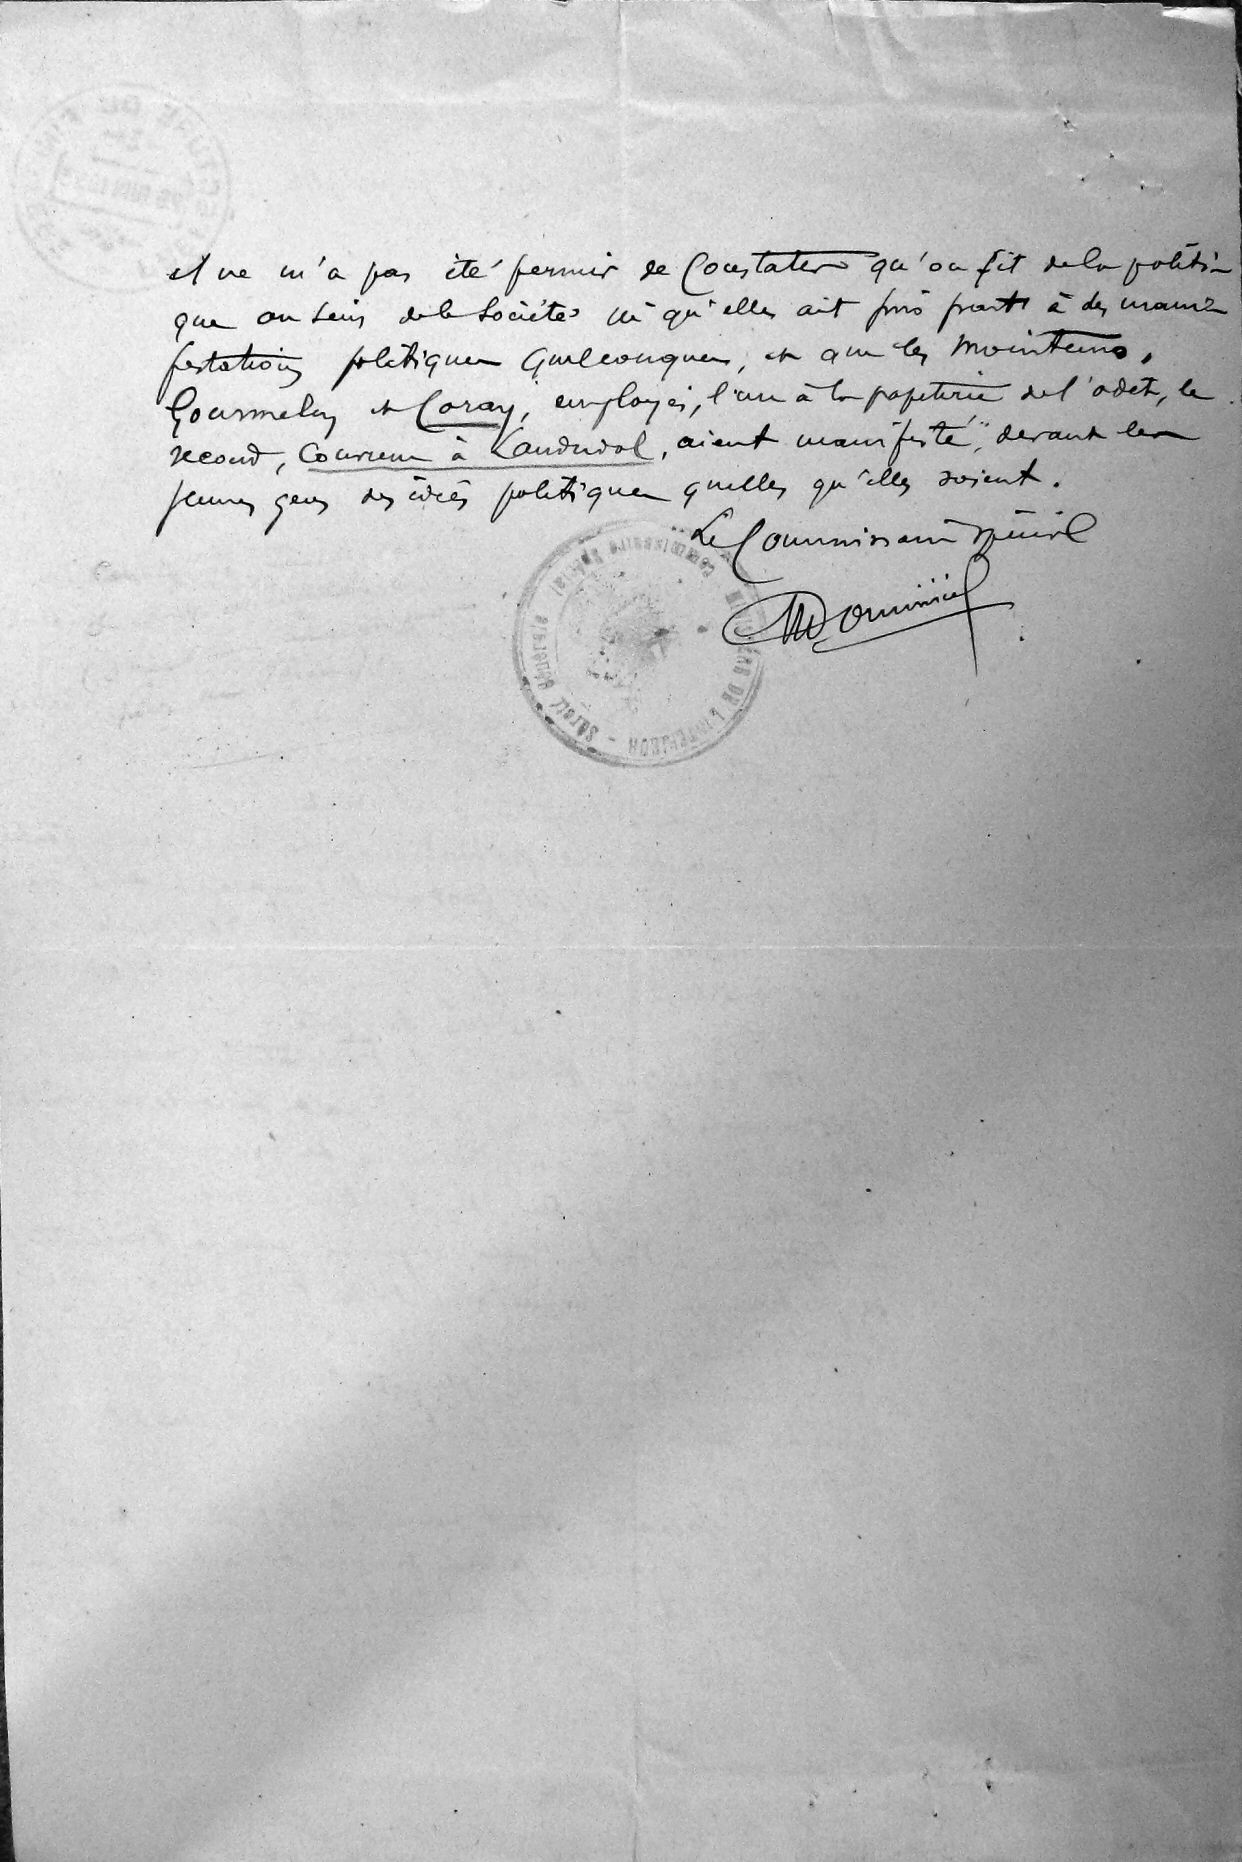 il ne m'a pas été permis de constater qu'on fit de la politi-
que au sein de la Société ni qu'elle ait pris part à des mani-
festations politiques quelconques, et que les moniteurs,
Gourmelen et Coray, employés, l'un à la papeterie de l'Odet, le
second, couvreur à Landudal, aient manifesté, devant les
jeunes gens des idées politiques quelles qu'elles soient.
Le Commissaire Spécial
MINISTÈRE DE L'INTERIEUR - Sûreté Générale
Commissaire Spécial